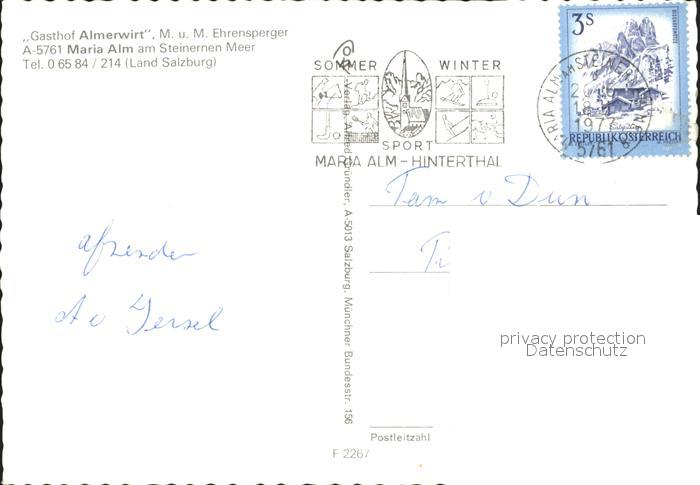 „Gasthof Almerwirt", M. u. M. Ehrensperger
A-5761 Maria Alm am Steinernen Meer
Tel. 0 65 84 / 214 (Land Salzburg)
SOMMER WINTER
SPORT
MARIA ALM – HINTERTHAL
3s
REPUBLIK ÖSTERREICH
1977
5761
Verlag Alfred Gründler, A-5013 Salzburg, Münchner Bundesstr. 156
Fam v Dun
afzender
A v Gersel
privacy protection
Datenschutz
Postleitzahl
F 2267